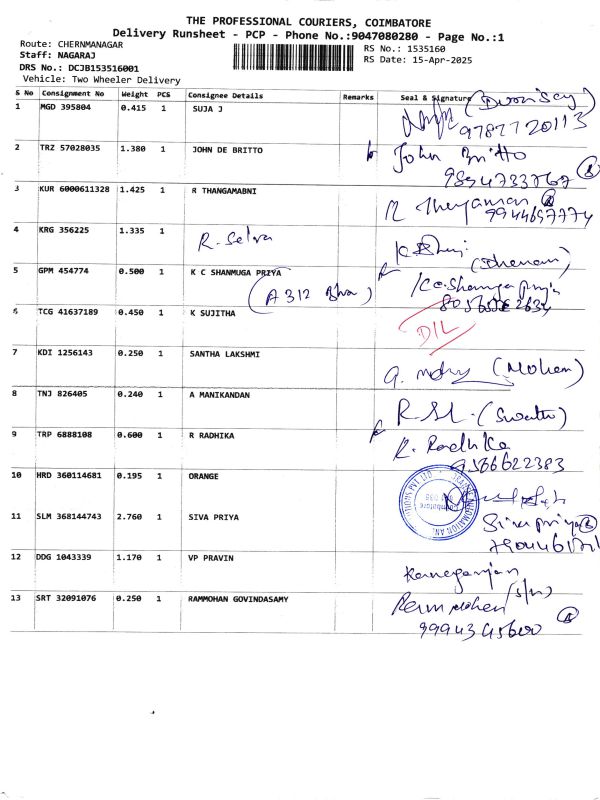 THE PROFESSIONAL COURIERS, COIMBATORE
Delivery Runsheet - PCP - Phone No.:9047080280 - Page No.:1
Route: CHERNMANAGAR
RS No.: 1535160
Staff: NAGARAJ
RS Date: 15-Apr-2025
DRS No.: DCJB153516001
Vehicle: Two Wheeler Delivery
S No Consignment No Weight PCS Consignee Details Remarks Seal & Signature
1 MGD 395804 0.415 1 SUJA J
9787720113
2 TRZ 57028035 1.380 1 JOHN DE BRITTO John Britto
9894733767
3 KUR 6000611328 1.425 1 R THANGAMABNI
9944657774
4 KRG 356225 1.335 1 R. Selva
5 GPM 454774 0.500 1 K C SHANMUGA PRIYA
(A 312
6 TCG 41637189 0.450 1 K SUJITHA DIL
7 KDI 1256143 0.250 1 SANTHA LAKSHMI
(Mohan)
8 TNJ 826405 0.240 1 A MANIKANDAN
9 TRP 6888108 0.600 1 R RADHIKA R. Radhika
9566622383
10 HRD 360114681 0.195 1 ORANGE
Coimbatore
11 SLM 368144743 2.760 1 SIVA PRIYA Sivapriya
12 DDG 1043339 1.170 1 VP PRAVIN
13 SRT 32091076 0.250 1 RAMMOHAN GOVINDASAMY
9994345600